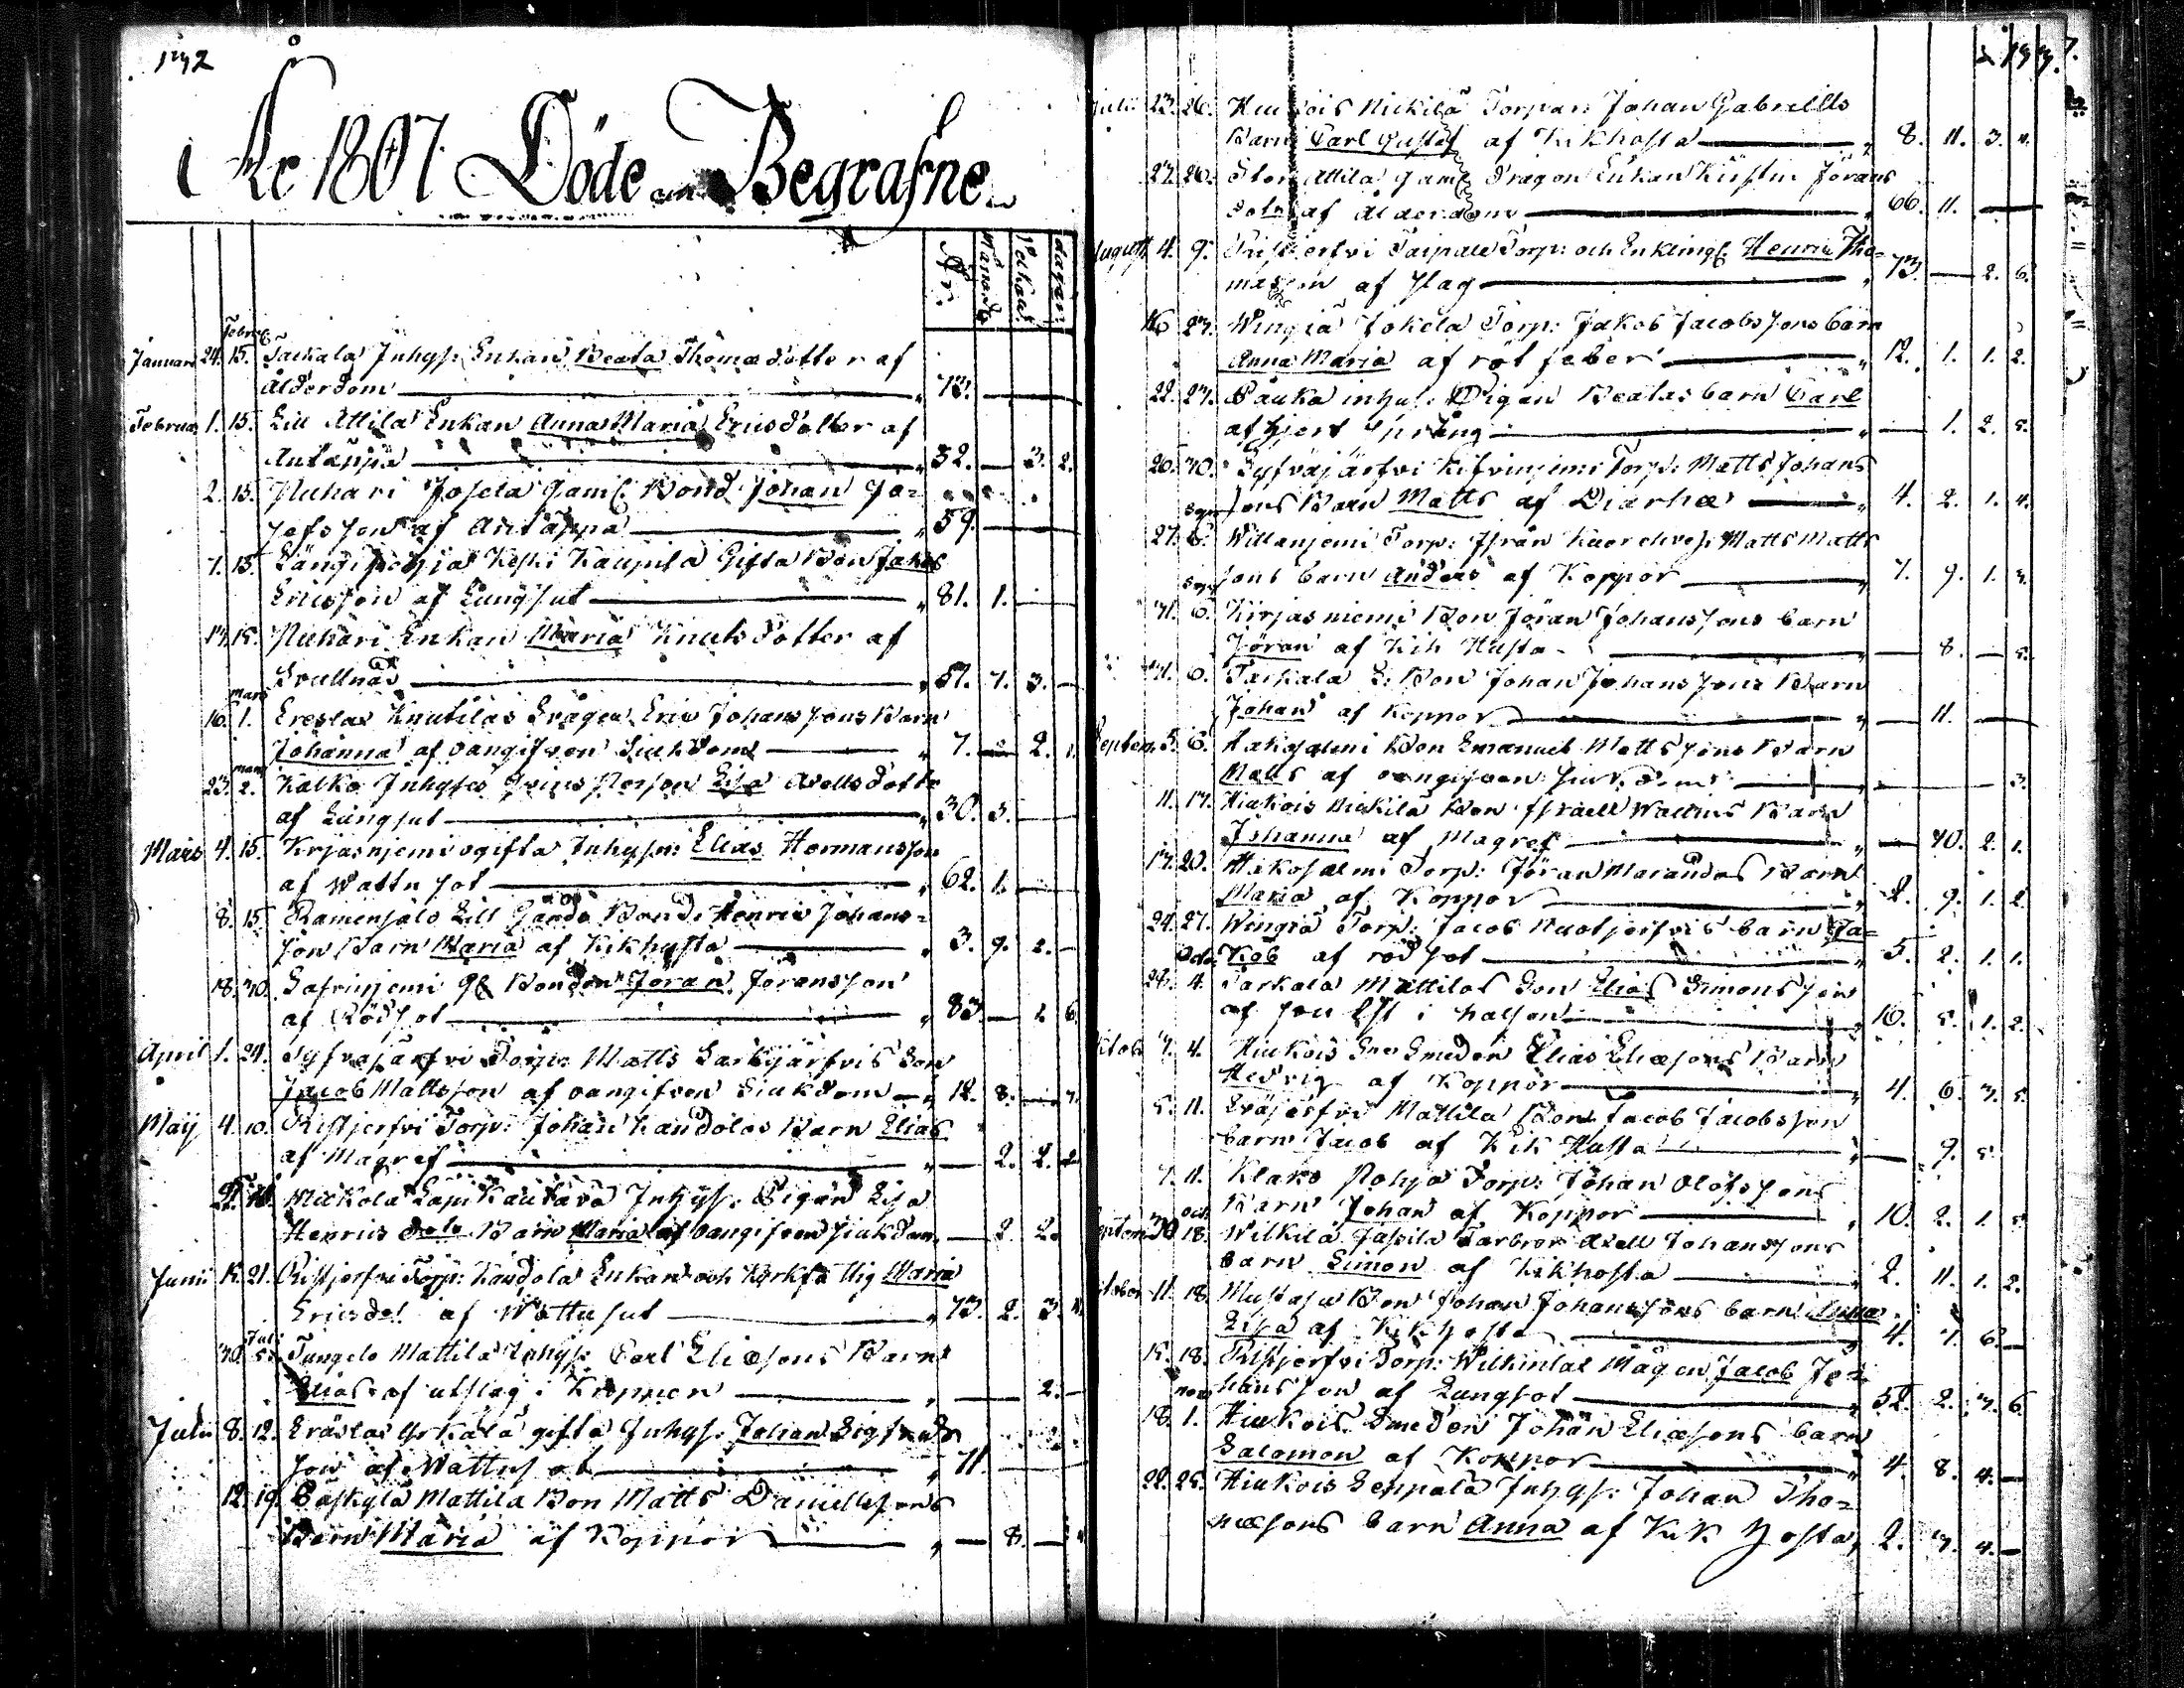 192
i År 1807 Döde och Begrafne
år månad veckor dagar
Febru
Januari 24. 15. Taikala Inhys: Enkan Beata Thomædotter af
Ålderdom 73.
Februa 1. 15. Lill Attila Enkan Anna Maria Ericsdotter af
Antäppa 52. 3. 2.
2. 15. Juhari Josela Gaml. Bond. Johan Jo=
sefsson af Antäppa 59.
7. 15. Längipohja Keski Kaupila Gifta Bon Jakob
Ericsson af Lungsot 81. 1.
13. 15. Juhari Enkan Maria Knutsdotter af
Svullnad 57. 7. 3.
Mars
16. 1. Ereslax Knutilas Dragon Eric Johanssons Barn
Johanna af oangifven Siukdom 7. 2. 1.
Mars
23. 2. Kalko Inhyses Qvins Person Lisa Axellsdotter
af Lungsot 30. 3.
Mars 4. 15. Kirjasniemi ogifta Inhys: Elias Hermansson
af Wattusot 62. 1.
8. 15. Lill Bond. Henric Johans=
son Barn Maria af Kikhosta 3. 9. 2.
18. 30. Bonden Jöran Jöransson
af Rödsot 83. 2. 6.
April 1. 24. Syfväjärfvi Torp: Matts Särkijärfvis Son
Jacob Mattsson af oangifven Siukdom 12. 8. 3.
Maij 4. 10. Ristjerfvi Torp: Johan Kandolas Barn Elias
af Magref 2. 2. 2.
Mickola Inhys: Pigan Lisa
Henricsdotr Barn Maria af oangifven siukdom 2. 2.
Junii 15. 21. Ristjerfvi Torp: Kandola Enkan och Kyrkfattig Maria
Ericsdot af Wattusot 73. 2. 3.
Juli
30. 5. Tungelo Mattila Inhys: Carl Eliæsons Barn
Elias af utslag i Kroppen 2.
Julii 8. 12. Eräslax Yrkälä gifta Inhys: Johan Sigfreds
son af Wattusot 71.
12. 19. Mattila Bon Matts Daniellssons
Barn Maria af Koppor 8.
193.
Julii 23. 26. Hiukois Nickilä Torpan Johan Gabriells
Barn Carl Gustaf af Kikhosta 8. 11. 3.
23. 26. Stor Attila Gaml Dragon Enkan Kirstin Jörans
Dotr af Ålderdom 66. 11.
August 4. 9. Ristjerfvi Taipale Torp: och Enkling Henric Tho=
masson af Slag 73. 2. 6.
16 23. Wingiä Jokela Torp: Jakob Jacobssons barn
Anna Maria af röt feber 12. 1. 1. 2.
22. 23. Pauka inhys: Pigan Beatas barn Carl
af Hjert Språng 1. 2. 5.
26. 30. Syfväjärfvi Kifviniemi Torp: Matts Johans
sons Barn Matts af Diarhæ 4. 2. 1. 4.
sept
27. 6. Willaniemi Torp: Matts Matts
sons barn Anders af Koppor 7. 9. 1. 3.
sept
31. 6. Kirjasniemi Bon Jöran Johanssons barn
Jöran af Kik Hosta 8. 5.
31. 6. Taikala L. Bon Johan Johanssons Barn
Johan af Koppor 11.
Septem. 5. 6. Hakosalmi Bon Emanuel Mattssons Barn
Matts af oangifven siukdom 3.
11. 13. Hiukois Nickilä Bon Israell Wallins Barn
Johanna af Magref 10. 2. 1.
17. 20. Hakosalmi Torp: Jöran Marandas Barn
Maria af Koppor 2. 9. 1. 2.
24. 27. Wingiä Torp: Jacob barn Ja=
kob af rödsot 5. 2. 1. 1.
Octo
28. 4. Taikala Mattilas Son Elias Simonsson
af svullst i halsen 16. 5. 1. 2.
Octob 3. 4. Hiukois Smeden Elias Eliæsons Barn
Hedvig af Koppor 4. 6. 3. 5.
5. 11. Mattila Bon Jacob Jacobsson
barn Jacob af Kik Hosta 9. 5.
7. 11. Pohja Torp: Johan Olofssons
Barn Johan af Koppor 10. 2. 1. 5.
Oct
Septem 30 18. Wilkilä Farbror Axell Johanssons
barn Simon af Kikhosta 2. 11. 1. 2.
October 11. 18. Mustaju Bon Johan Johanssons barn Anna
Lisa af Kikhosta 4. 7. 6.
15. 18. Ristjerfvi Torp: Wilkinlas Mågen Jacob Jo=
hansson af Lungsot 52. 2. 3. 6.
nov
18. 1. Hiukois Smeden Johan Eliæsons barn
Salomon af Koppor 4. 8. 4.
22. 25. Hiukois Seppälä Inhys: Johan Tho=
mæsons barn Anna af Kik hosta 2. 3. 4.